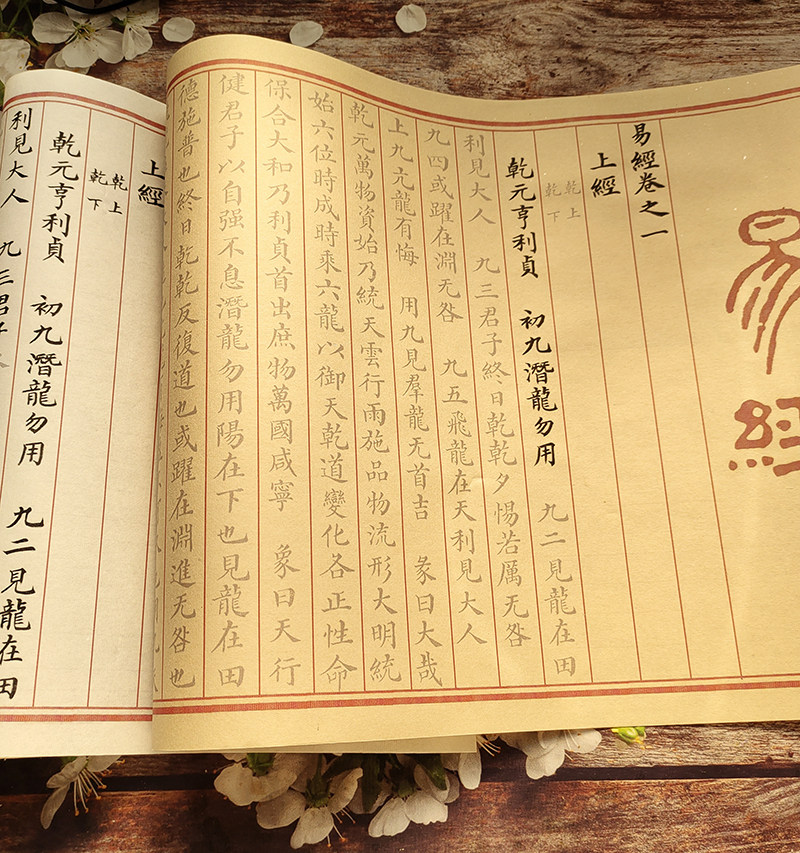 易經
易經卷之一
上經
乾上
乾下
乾元亨利貞 初九潛龍勿用 九二見龍在田
利見大人 九三君子終日乾乾夕惕若厲无咎
九四或躍在淵无咎 九五飛龍在天利見大人
上九亢龍有悔 用九見羣龍无首吉 彖曰大哉
乾元萬物資始乃統天雲行雨施品物流形大明統
始六位時成時乘六龍以御天乾道變化各正性命
保合大和乃利貞首出庶物萬國咸寧 象曰天行
健君子以自强不息潛龍勿用陽在下也見龍在田
德施普也終日乾乾反復道也或躍在淵進无咎也
上經
乾上
乾下
乾元亨利貞 初九潛龍勿用 九二見龍在田
利見大人 九三君子